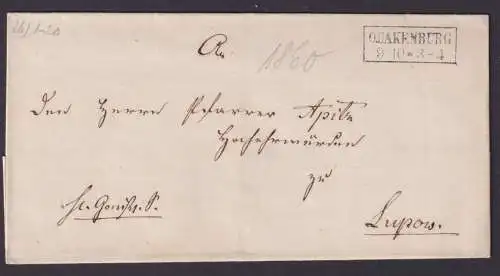 QUAKENBURG
9 10 * 3-4
An
1860
Den Herrn Pfarrer Apitz
Hochehrwürden
zu
Lupow.